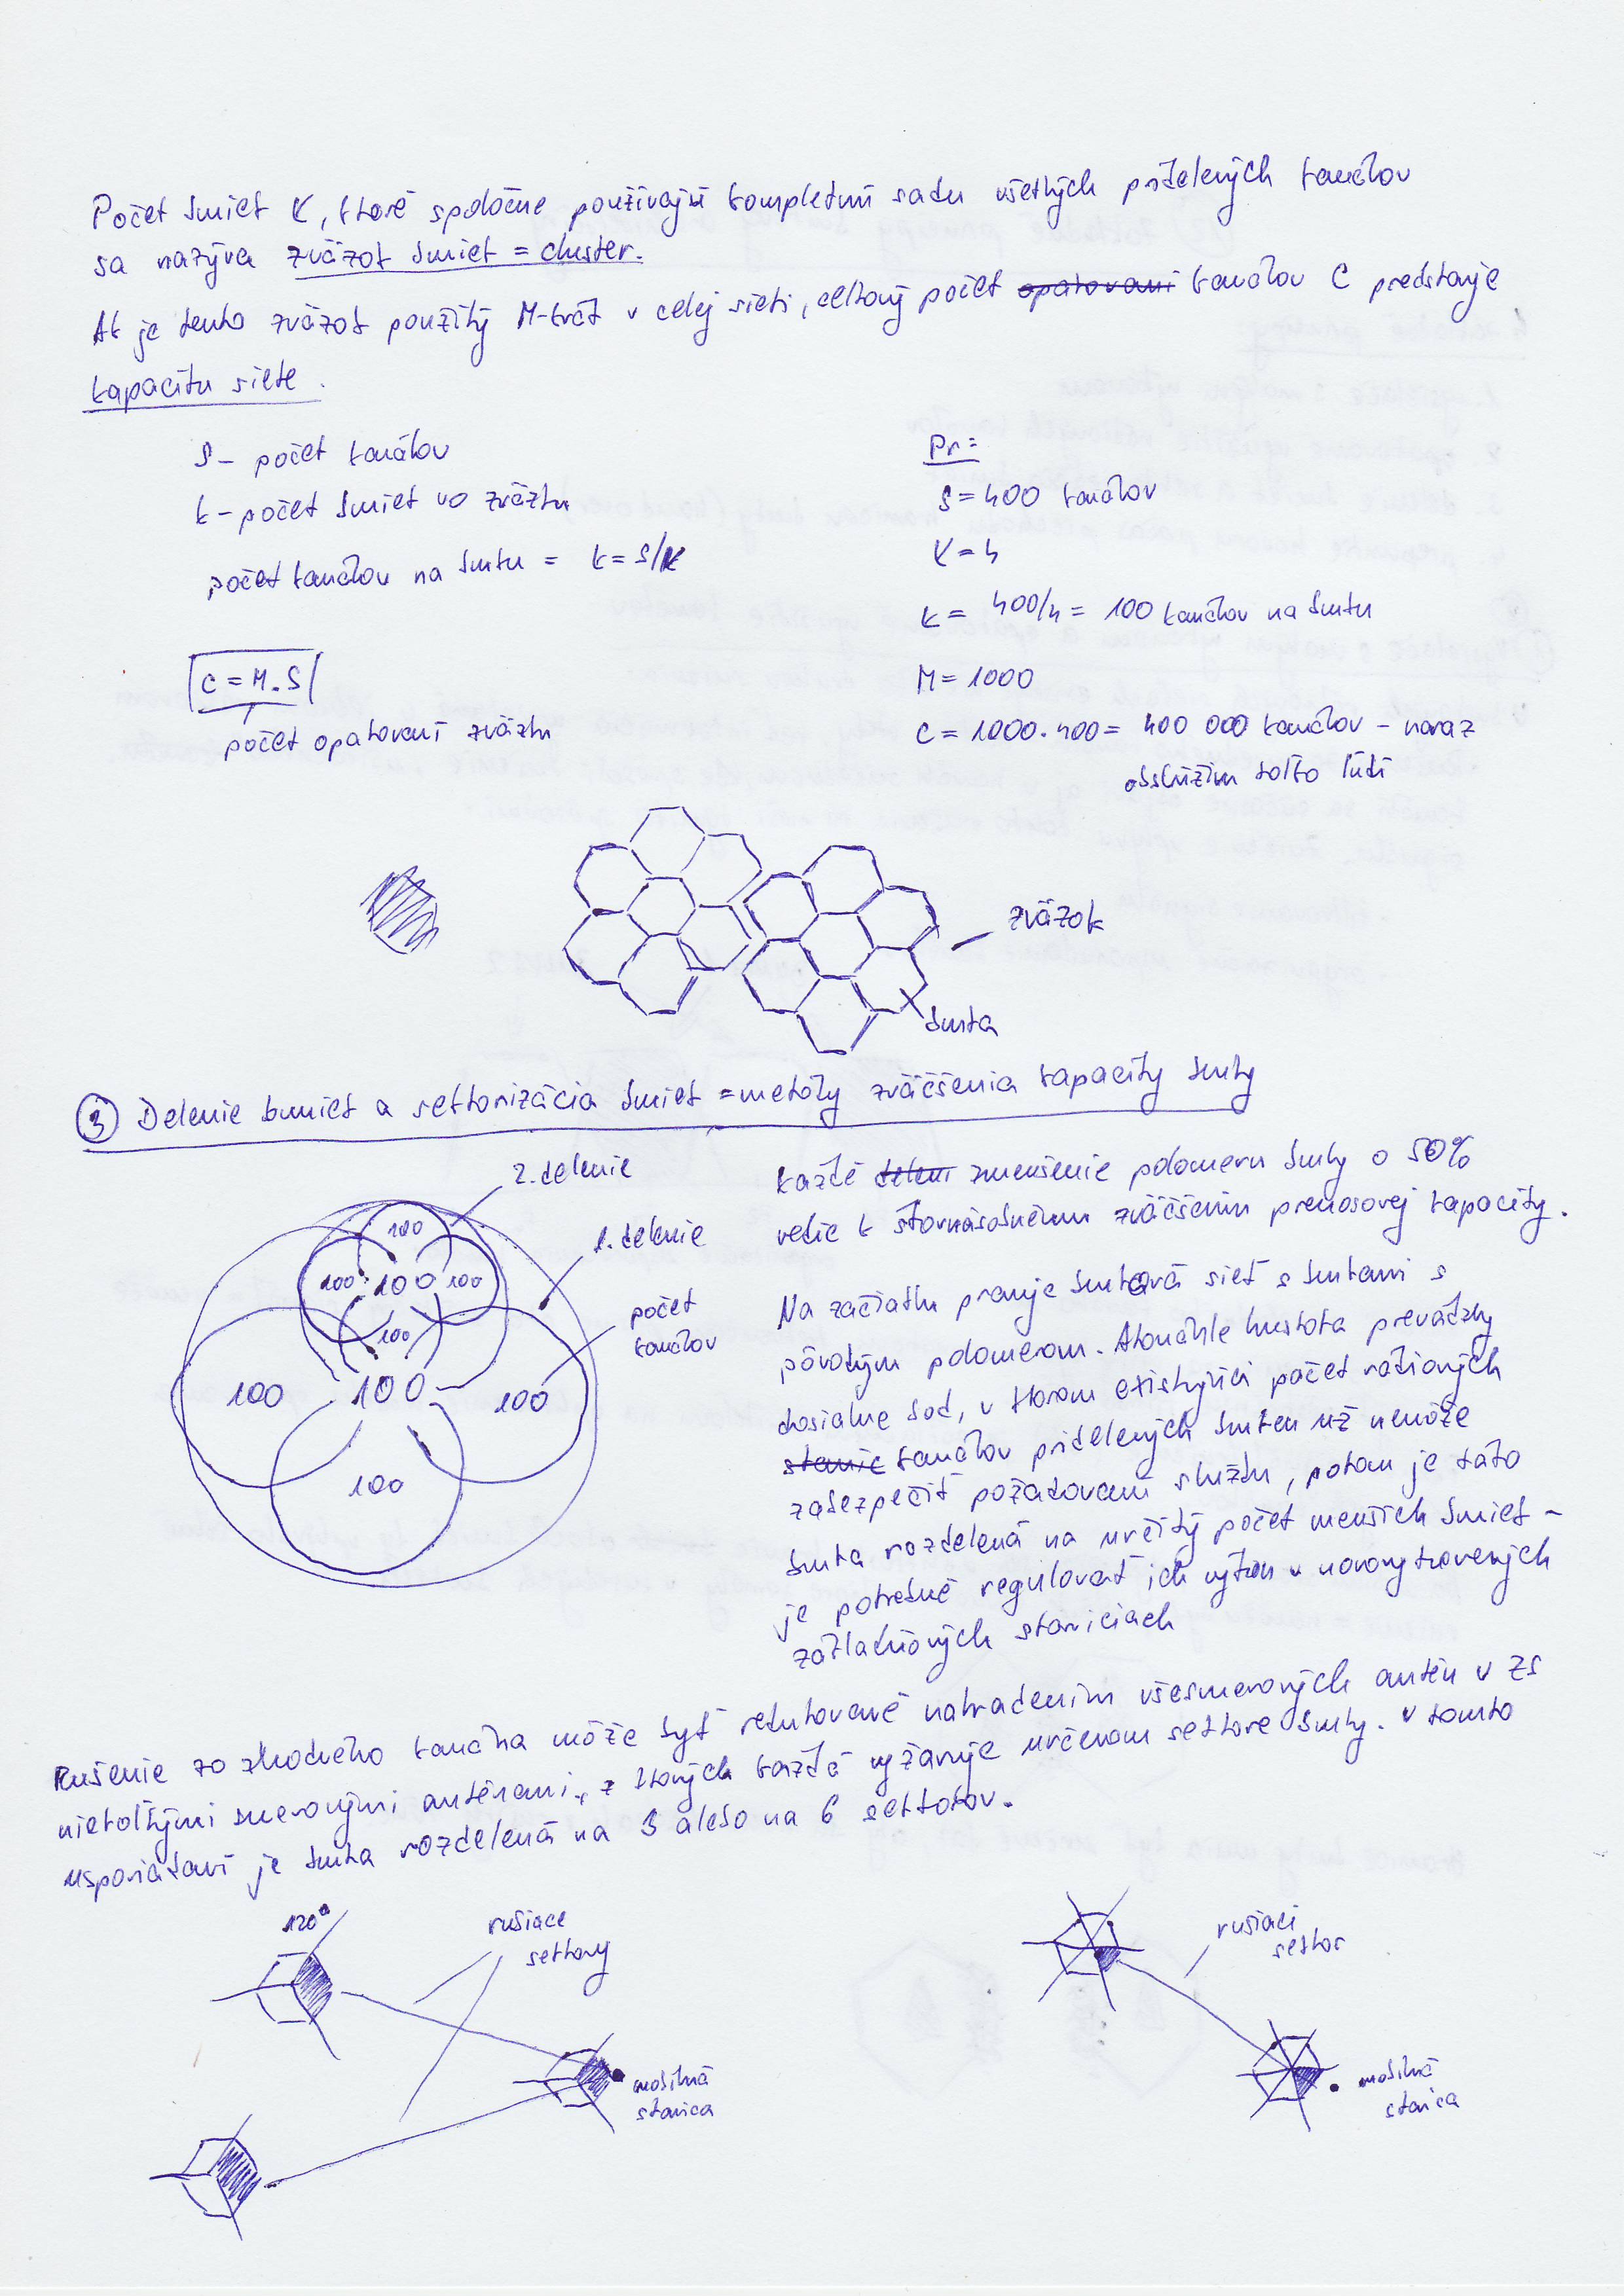 Počet buniek K, ktoré spoločne používajú kompletnú sadu všetkých pridelených kanálov
sa nazýva zväzok buniek = cluster.
Ak je tento zväzok použitý M-krát v celej sieti, celkový počet opakovaní kanálov C predstavuje
kapacitu siete.
S - počet kanálov
k - počet buniek vo zväzku
počet kanálov na bunku = k = S/K
C = M.S
počet opakovaní zväzku
Pr:
S = 400 kanálov
K = 4
k = 400/4 = 100 kanálov na bunku
M = 1000
C = 1000.400 = 400 000 kanálov - naraz
obslúžim toľko ľudí
zväzok
bunka
3 Delenie buniek a sektorizácia buniek = metódy zväčšenia kapacity bunky
2. delenie
1. delenie
počet
kanálov
100
100 100 100
100
100 100 100
100
Každé delení zmenšenie polomeru bunky o 50%
vedie k štvornásobnému zväčšeniu prenosovej kapacity.
Na začiatku pracuje bunková sieť s bunkami s
pôvodným polomerom. Akonáhle hustota prevádzky
dosiahne bod, v ktorom existujúci počet rádiových
staníc kanálov pridelených bunke už nemôže
zabezpečiť požadovanú službu, potom je táto
bunka rozdelená na určitý počet menších buniek -
je potrebné regulovať ich výkon v novovytvorených
základňových staniciach
Rušenie zo zhodného kanála môže byť redukované nahradením všesmerových antén v ZS
niekoľkými smerovými anténami, z ktorých každá vyžaruje určenom sektore bunky. V tomto
usporiadaní je bunka rozdelená na 3 alebo na 6 sektorov.
120°
rušiace
sektory
mobilná
stanica
rušiaci
sektor
mobilná
stanica